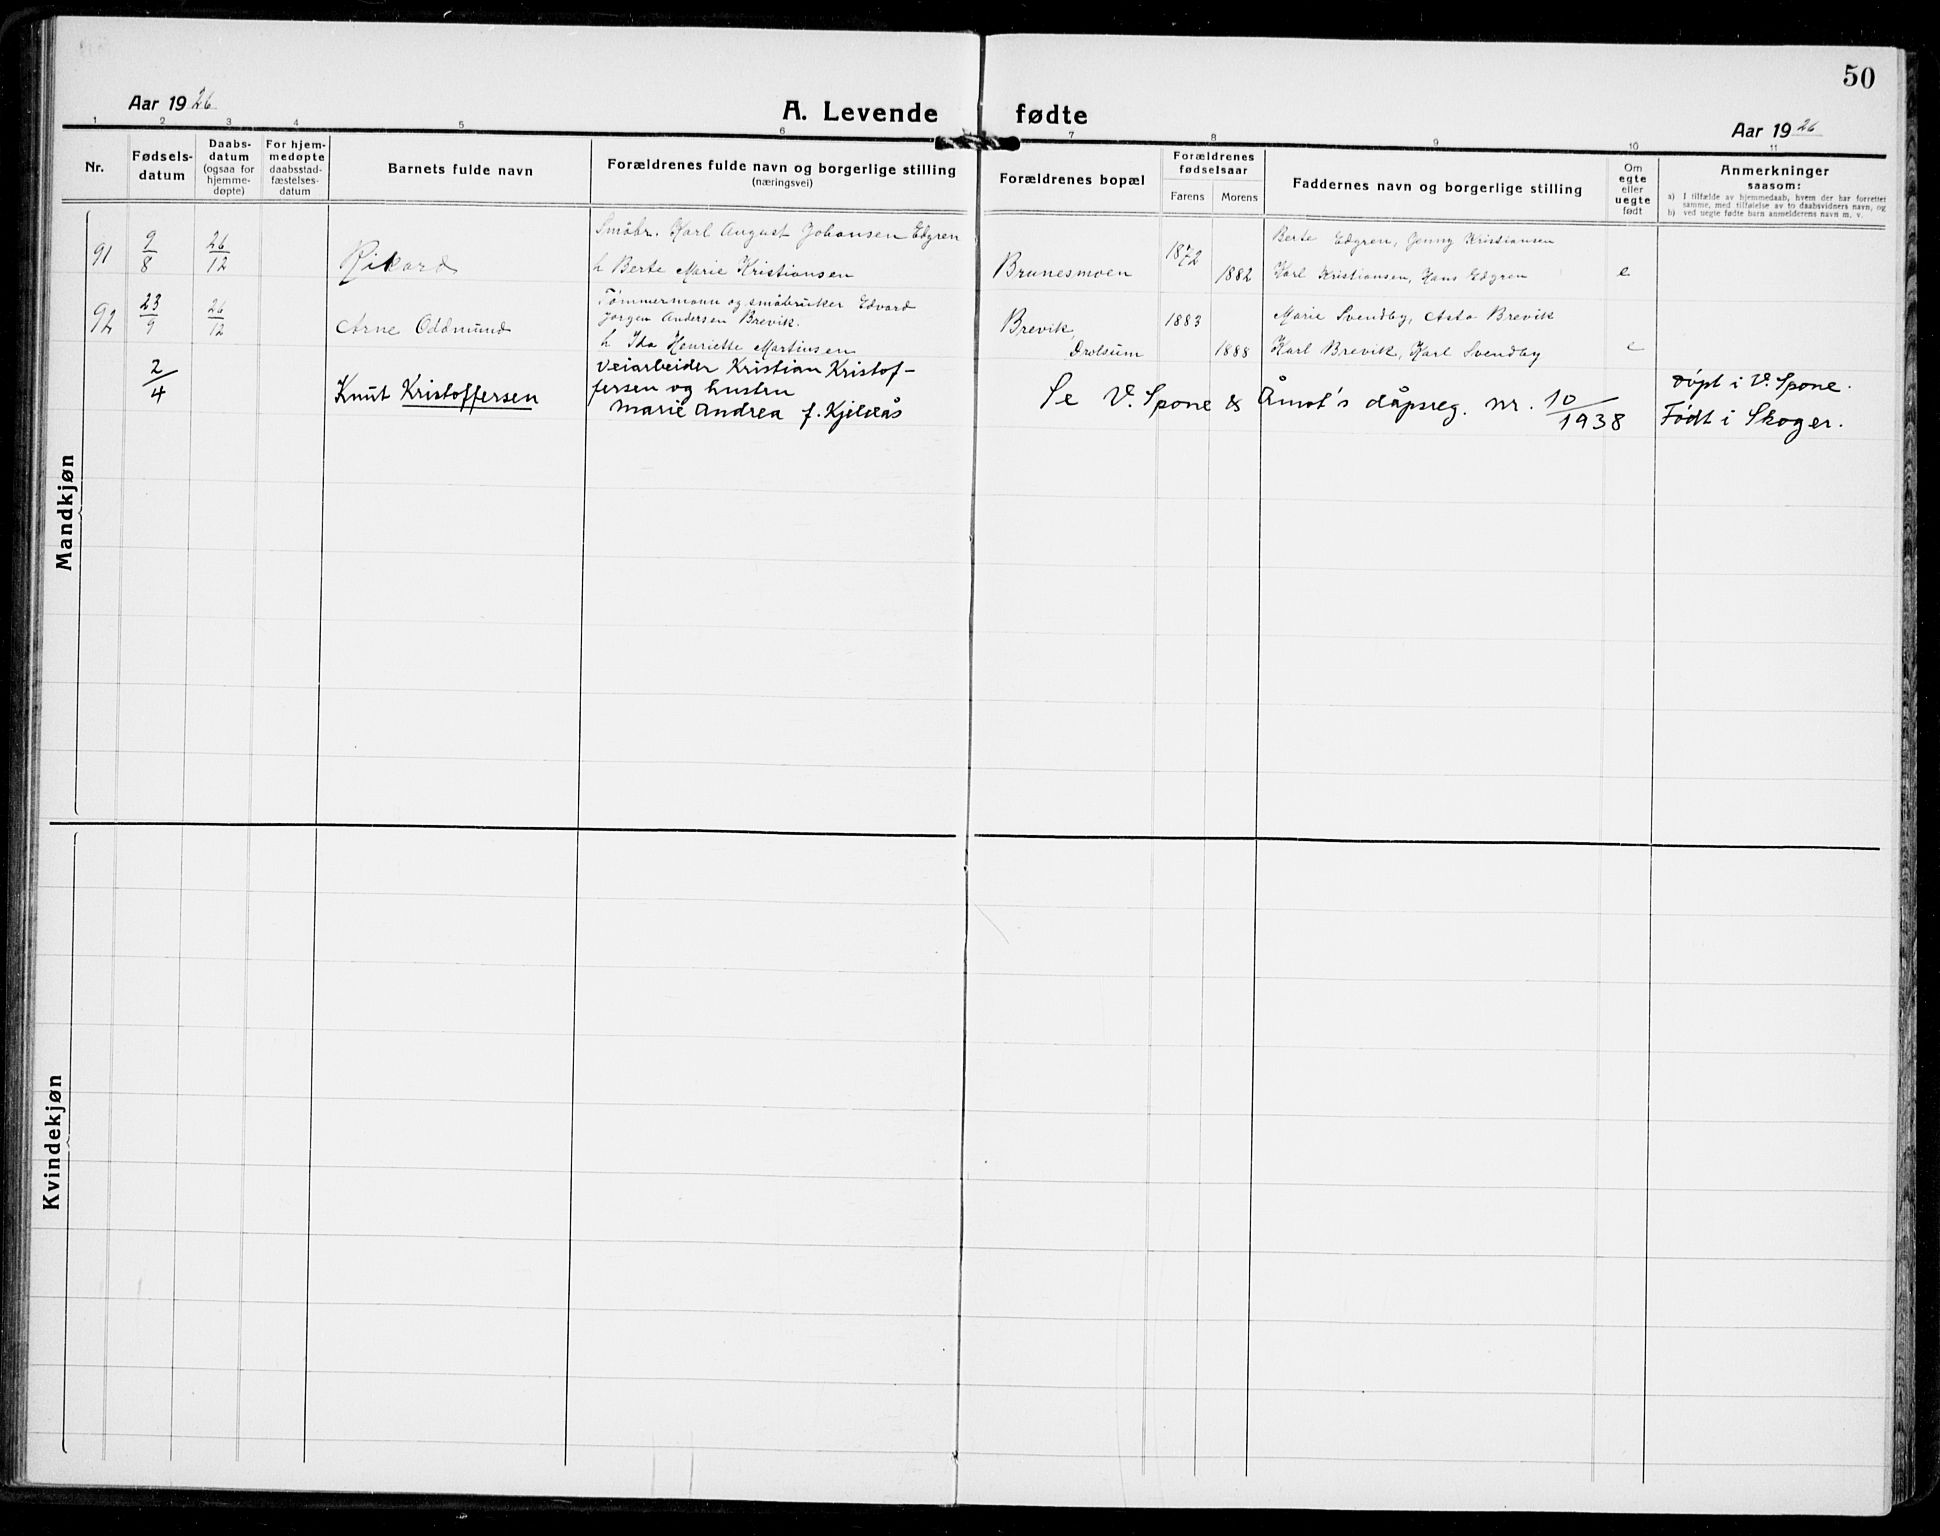 50
Aar 1926
A. Levende fødte
Aar 1926
1 2 3 4 5 6 7 8 9 10 11
Nr.
Fødsels-
datum
Daabs-
datum
(ogsaa for
hjemme-
døpte)
For hjem-
medøpte
daabsstad-
fæstelses-
datum
Barnets fulde navn
Forældrenes fulde navn og borgerlige stilling
(næringsvei)
Forældrenes bopæl
Forældrenes
fødselsaar
Farens Morens
Faddernes navn og borgerlige stilling
Om
egte
eller
uegte
født
Anmerkninger
saasom:
a) I tilfælde av hjemmedaab, hvem der har forrettet
samme, med tilføielse av to daabsvidners navn, og
b) ved uegte fødte barn anmelderens navn m. v.
Mandkjøn
91 9/8 26/12 Rikard
Småbr. Karl August Johansen Edgren
h Berte Marie Kristiansen
Brunesmoen 1872 1882
Berte Edgren, Jenny Kristiansen
Karl Kristiansen, Hans Edgren e
92 23/9 26/12 Arne Oddmund
Tømmermann og småbruker Edvard
Jørgen Andersen Brevik.
h Ida Henriette Martinsen
Brevik,
Drolsum
1883 1888
Marie Svendby, Asta Brevik
Karl Brevik, Karl Svendby e
2/4 Knut Kristoffersen
Veiarbeider Kristian Kristof-
fersen og hustru
Marie Andrea f. Kjeldås
Se V. Spone & Åmot's dåpsreg. nr. 10/1938
Døpt i V. Spone.
Født i Skoger.
Kvindekjøn